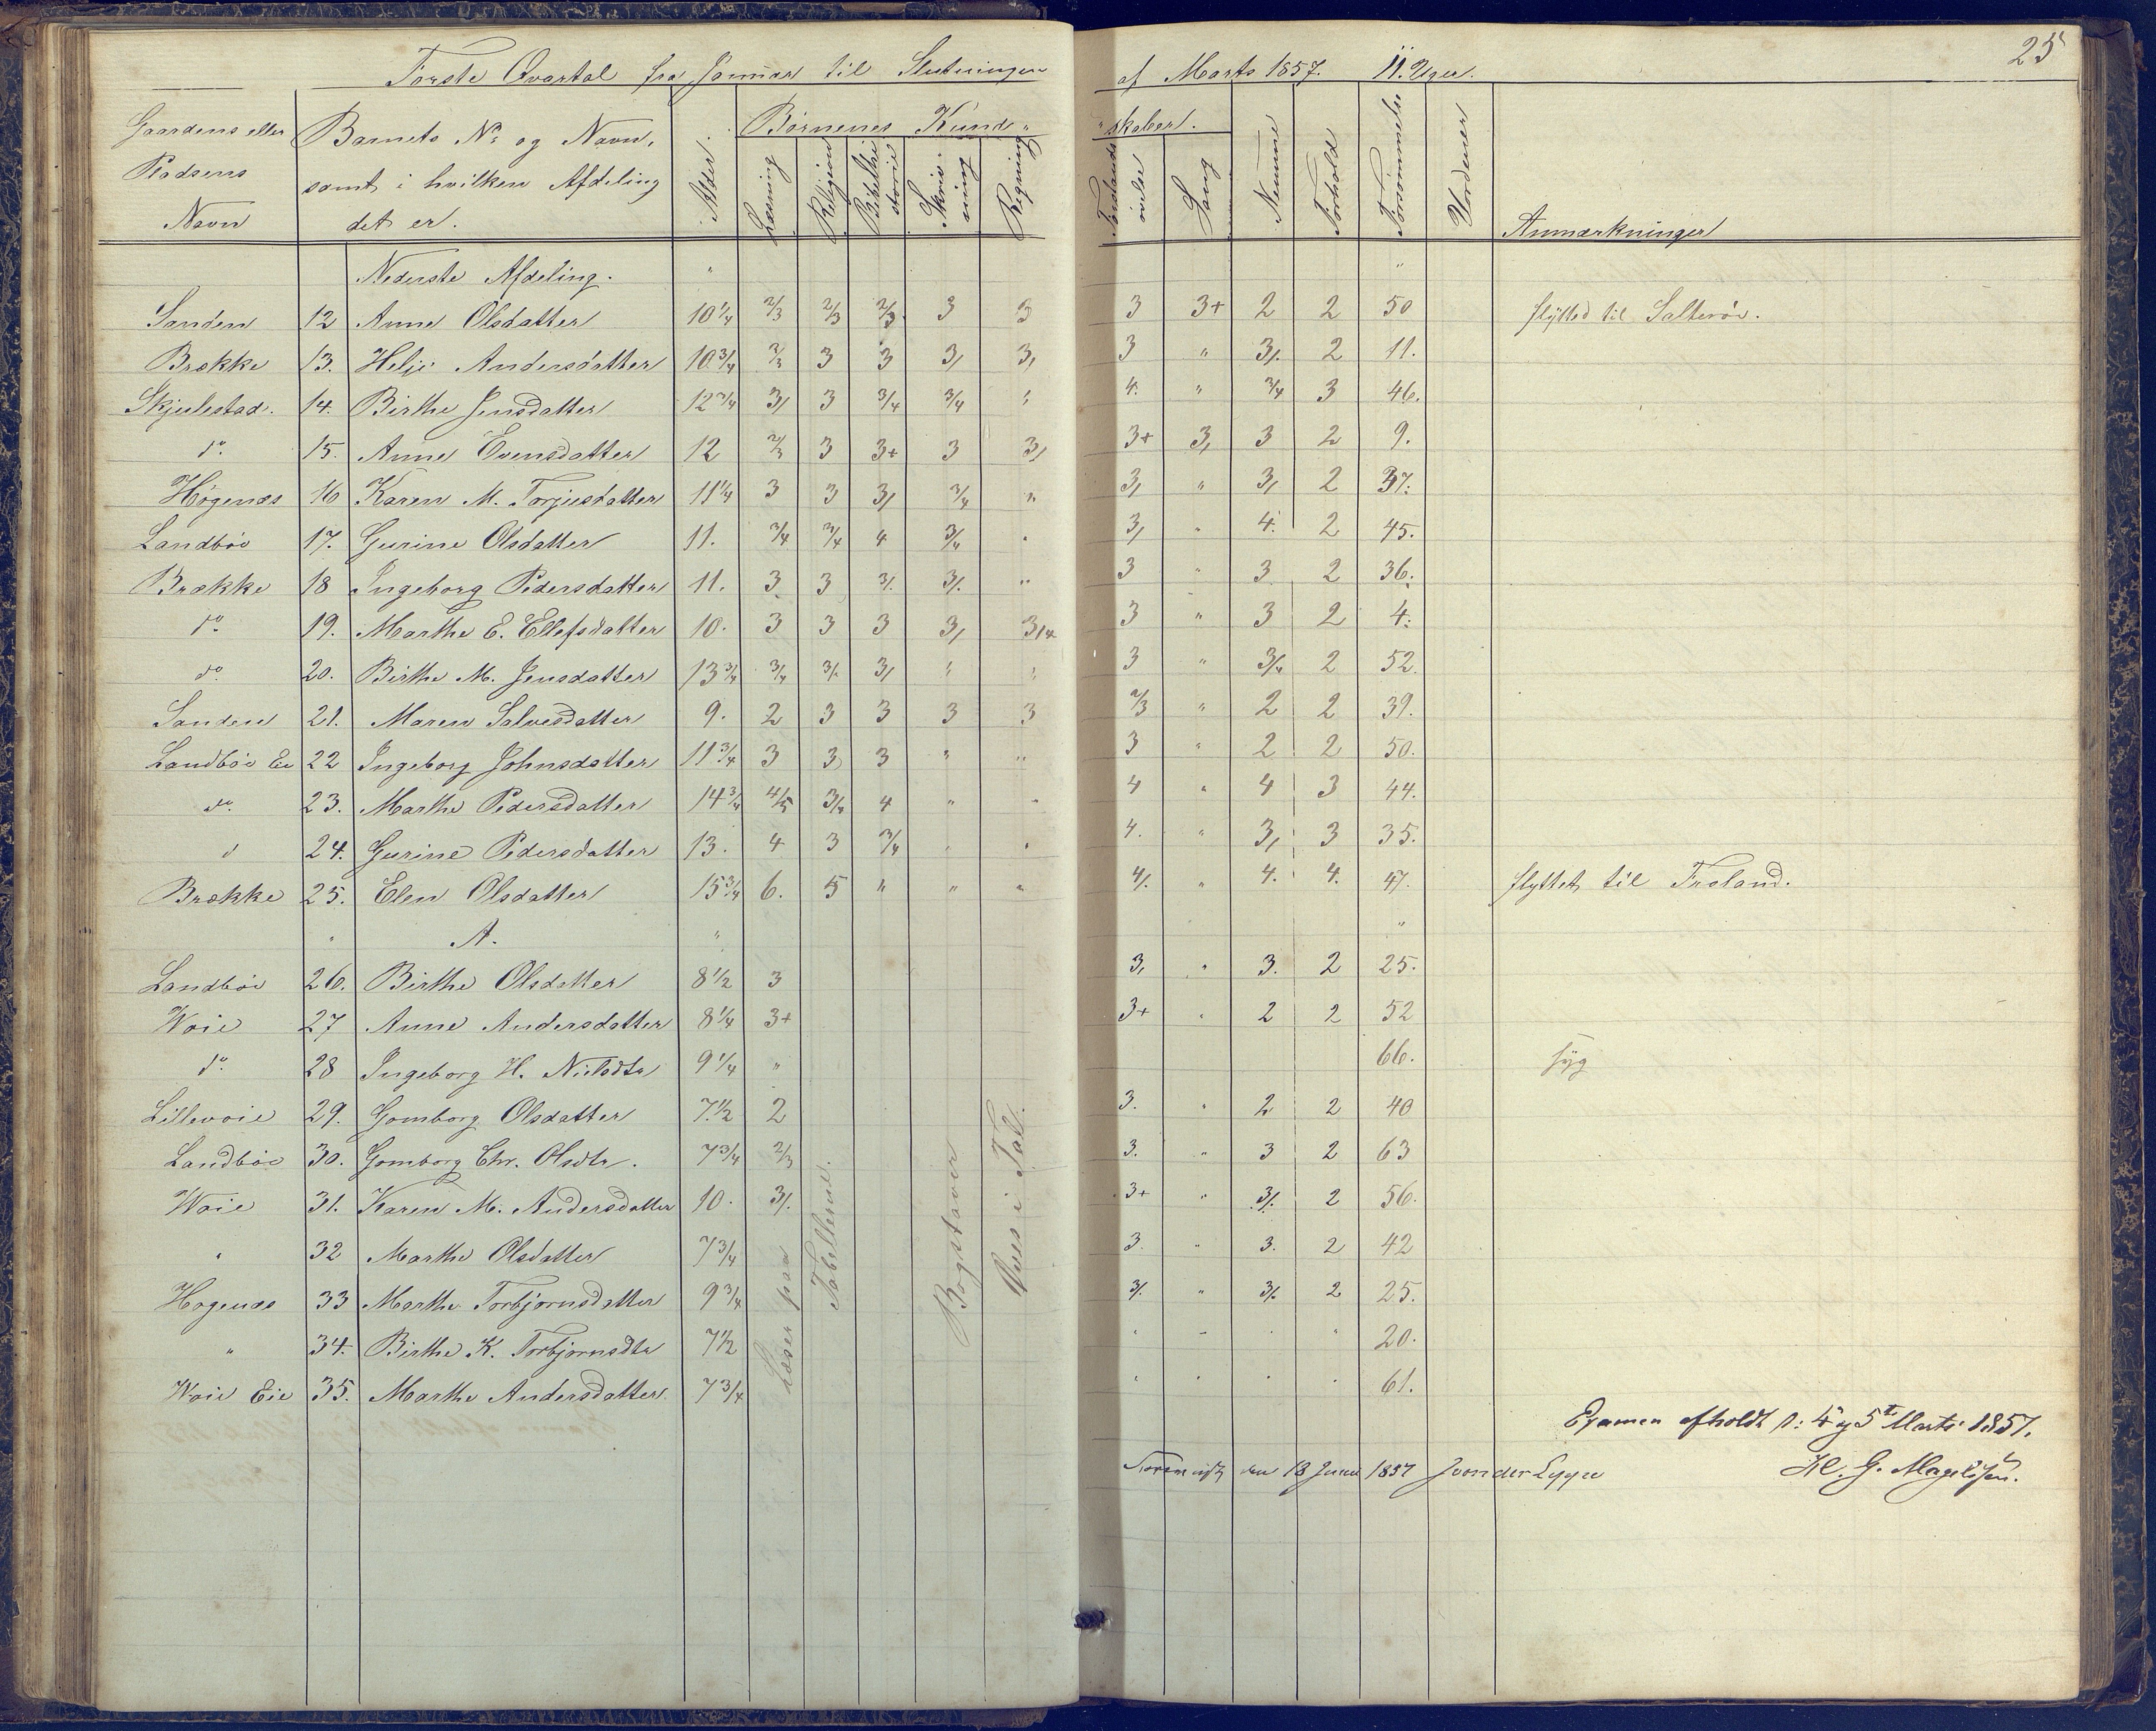 25
Første Qvartal fra Januar til Slutningen af Marts 1857. 11. Uger.
Gaardens eller Pladsens Navn | Barnets No og Navn, samt i hvilken Afdeling det er. | Alder. | Børnenes Kund- skaber. | Læsning | Religion | Bibelhistorie | Skrivning | Regning | Forstandsøvelse | Sang | Nemme | Forhold | Forsømmelse | Vordener | Anmærkninger
Nederste Afdeling. " "
Sanden 12 Anne Olsdatter 10 1/4 2/3 2/3 2/3 3 3 3 3+ 2 2 50 flytted til Salterøe.
Brække 13. Helje Andersdatter 10 3/4 2/3 3 3 3/ 3, 3 " 3/. 2 11.
Skjulestad. 14. Birthe Jensdatter 12 3/4 3/ 3 3/4 3/4 " 4. " 3/4 3 46.
do 15. Anne Evensdatter 12 2/3 3 3+ 3 3/ 3+ 3, 3 2 9.
Høgenæs 16 Karen M. Torjusdatter 11 1/4 3 3 3/ 3/4 " 3, " 3/ 2 37.
Landbøe 17. Gurine Olsdatter 11. 3/4 3/4 4 3/4 " 3, " 4. 2 45.
Brække 18 Ingeborg Pedersdatter 11. 3. 3 3/. 3/. " 3 " 3 2 36.
do 19. Marthe E. Ellefsdatter 10. 3 3 3 3/ 3/4 3 " 3 2 4.
do 20. Birthe M. Jensdatter 13 3/4 3/4 3/. 3/ " " 3 " 3/4 2 52.
Sanden 21. Maren Salvesdatter 9. 2 3 3 3 3 2/3 " 2 2 39.
Landbøe Eie 22 Ingeborg Johnsdatter 11 3/4 3 3 3 " " 3 " 2 2 50.
do. 23. Marthe Pedersdatter 14 3/4 4/5 3/4 4 " " 4 " 4 3 44.
d 24. Gurine Pedersdatter 13. 4 3 3/4 " " 4. " 3/ 3 35.
Brække 25. Elen Olsdatter 15 3/4 6. 5 " " " 4/. " 4. 4. 47. flyttet til Froland.
" A. " "
Landbøe 26. Birthe Olsdatter 8 1/2 3 3, " 3. 2 25.
Woie 27 Anne Andersdatter 8 1/4 3+ 3+ " 2 2 52
do. 28 Ingeborg H. Nielsdtr 9 1/4 " 66. syg
Lillevoie 29. Gomborg Olsdatter 7 1/2 2 3. " 2 2 40
Landbøe 30. Gomborg Chr. Olsdtr. 7 3/4 2/3 3. " 3 2 63
Woie 31. Karen M. Andersdatter 10. 3/. 3+ " 3/. 2 56.
" 32 Marthe Olsdatter 7 3/4 3. " 3. 2 42
Høgenæs 33 Marthe Torbjørnsdatter 9 3/4 3/. " 3/. 2 25.
" 34. Birthe K. Torbjørnsdtr 7 1/2 " " " " 20.
Woie Eie 35. Marthe Andersdatter 7 3/4 " " " " 61.
Læser paa Tabellerne.
Bogstaver
Øves i Tal.
Examen afholdt d: 4 og 5te Marts 1857.
H. G. Magelssen.
den 13 Juni 1857 J von der Lippe